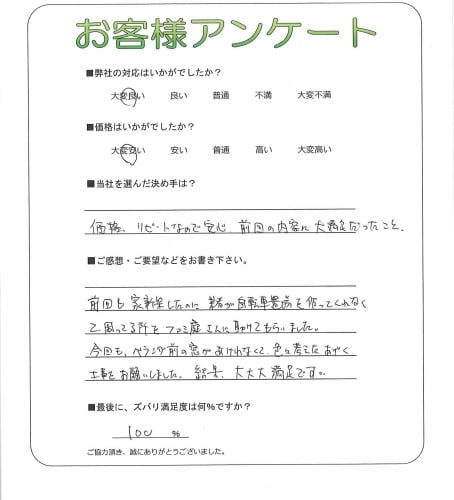 お客様アンケート
■弊社の対応はいかがでしたか？
大変良い 良い 普通 不満 大変不満
■価格はいかがでしたか？
大変安い 安い 普通 高い 大変高い
■当社を選んだ決め手は？
価格、リピートなので安心、前回の内容に大満足だったこと。
■ご感想・ご要望などをお書き下さい。
前回も家新築したのに 業者が自転車置場を作ってくれなく
て困ってる所をファミ庭さんに助けてもらいました。
今回も、ベランダ前の窓があけれなくて、色々考えたあげく
工事をお願いしました。結果、大大大満足です。
■最後に、ズバリ満足度は何%ですか？
100 %
ご協力頂き、誠にありがとうございました。